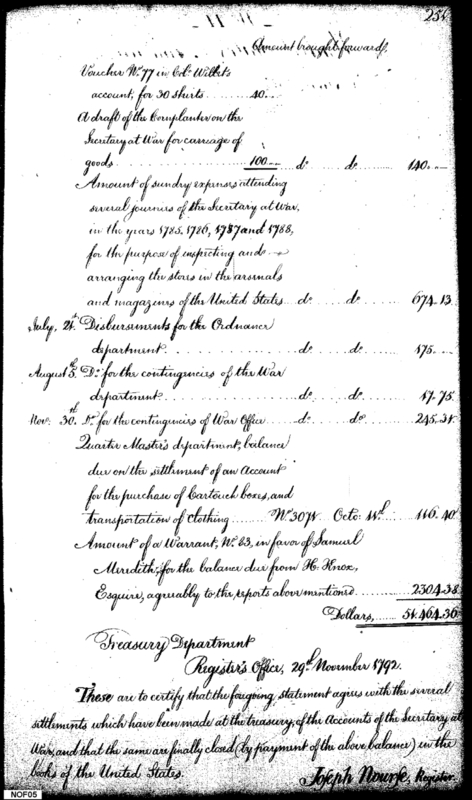 Amount brought forward,
Voucher No. 77 in Col. Willet's
account, for 30 shirts ...... 40. --
A draft of the Cornplanter on the
Secretary at War for carriage of
goods ...... 100 -- do. do. 140. --
Amount of sundry expenses attending
several journies of the Secretary at War,
in the years 1785, 1786, 1787 and 1788,
for the purpose of inspecting and
arranging the stores in the arsenals
and magazines of the United States. do. do. 674.13.
July, Disbursements for the Ordnance
department ...... do. do. 175. --
August Do. for the contingencies of the War
department ...... do. do. 17.75.
Nov. 30.th Do. for the contingencies of War Office do. do.
Quarter Master's department, balance
due on the settlement of an Account
for the purchase of Cartouch boxes, and
transportation of Clothing ...... Octo: 116.40
Amount of a Warrant, in favor of Samuel
Meredith, for the balance due from H. Knox,
Esquire, agreeably to the reports above mentioned ...... 2304.38.
Dollars,
Treasury Department
Register's Office, 29th November 1792.
These are to certify that the foregoing statement agrees with the several
settlements which have been made at the treasury, of the Accounts of the Secretary at
War, and that the same are finally closed (by payment of the above balance) in the
books of the United States. Joseph Nourse, Register.
NOF05